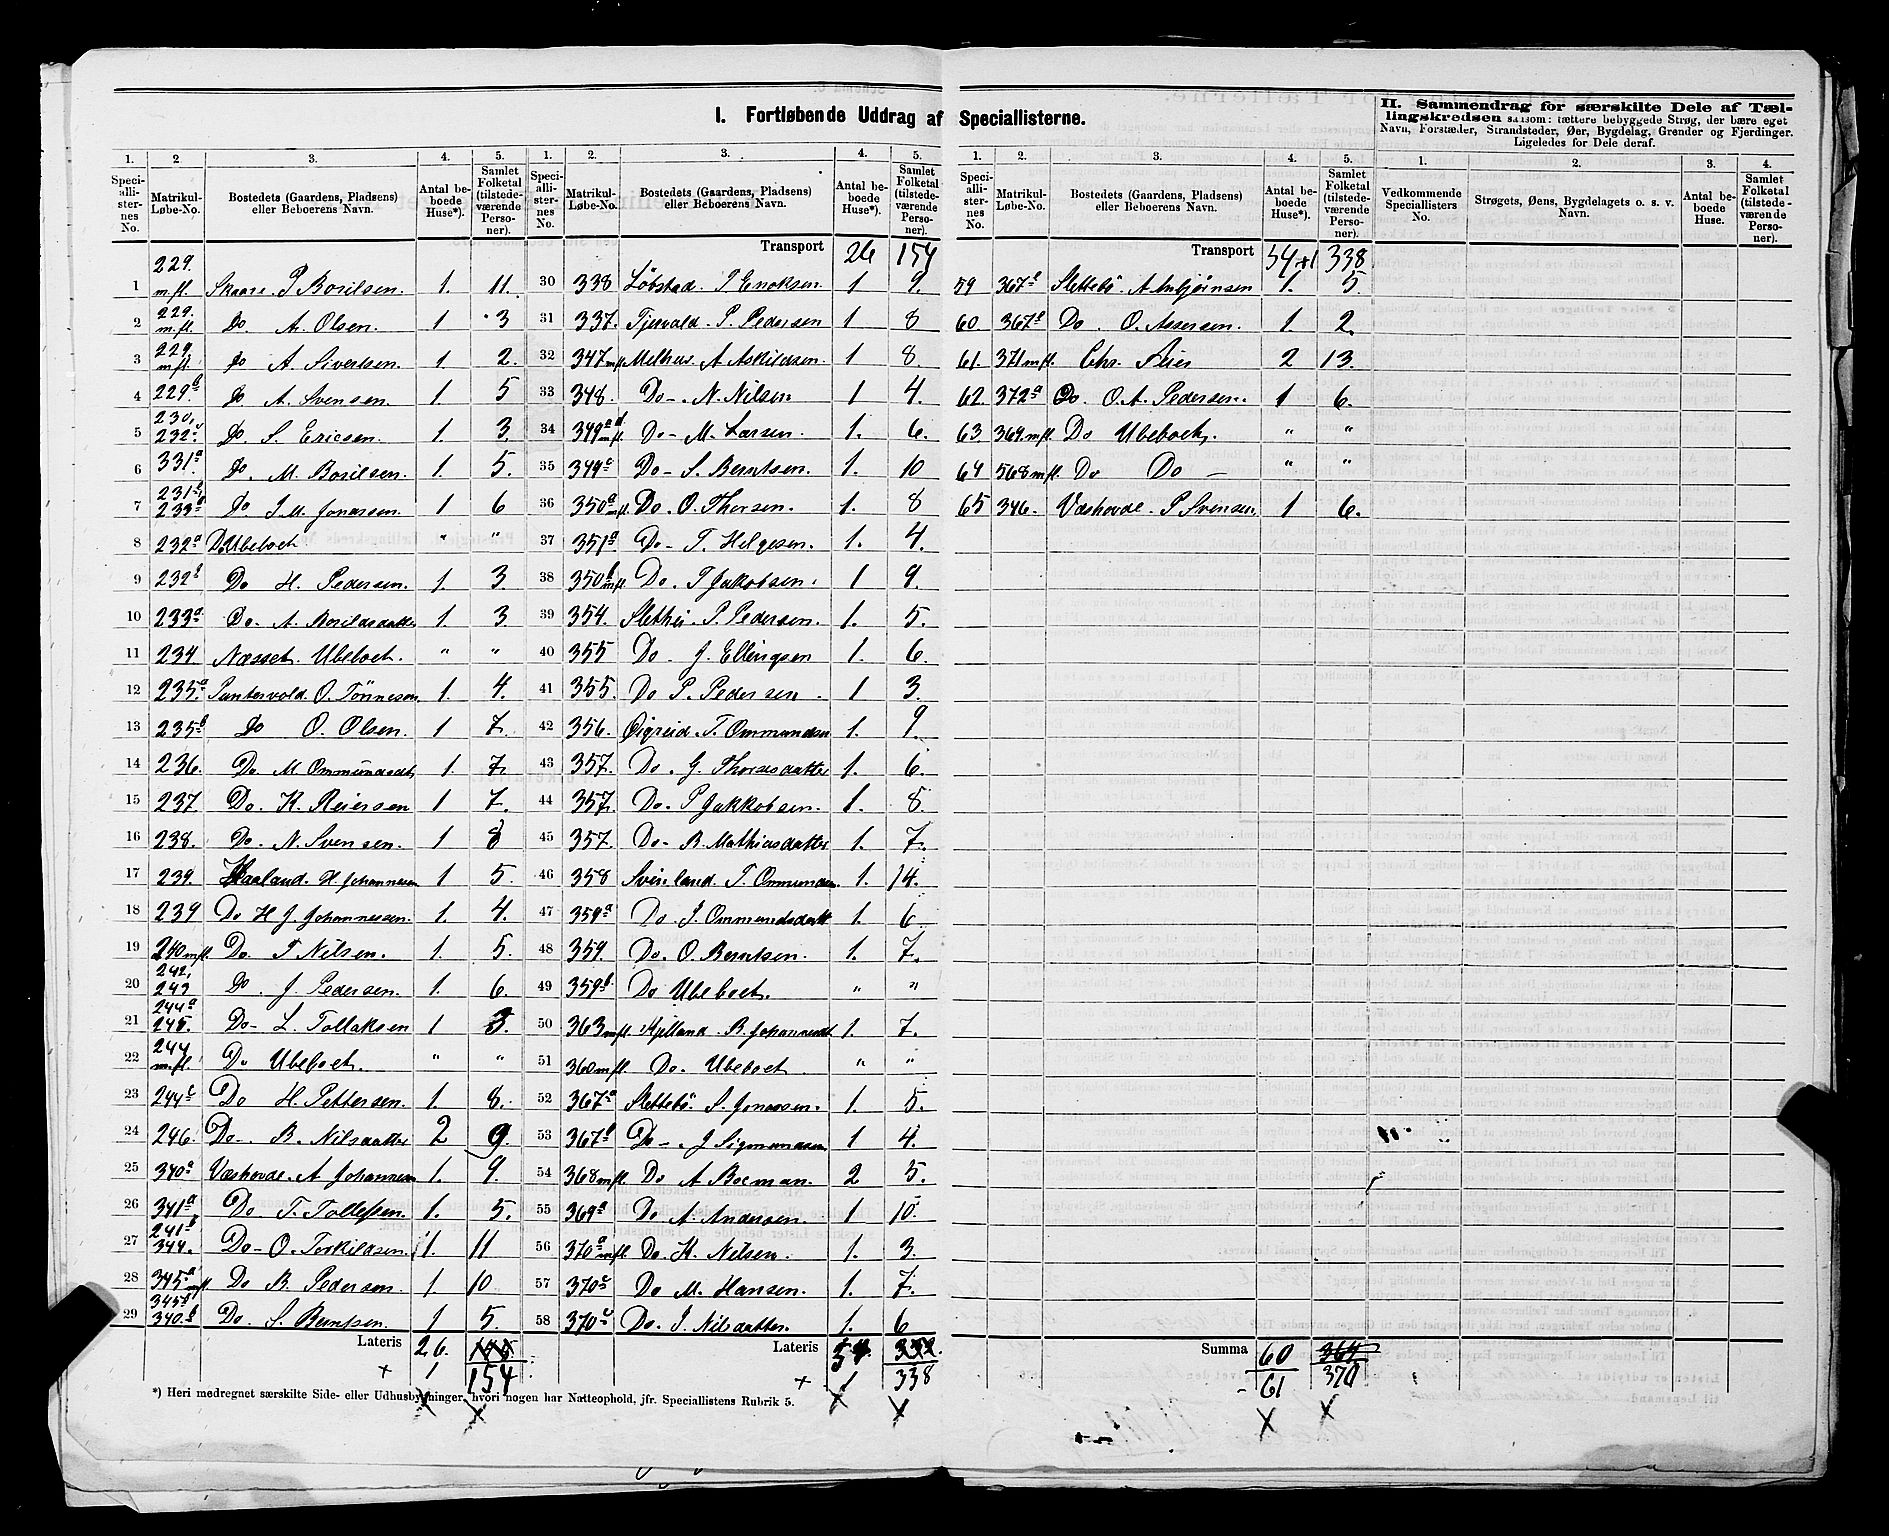 I. Fortløbende Uddrag af Speciallisterne.
II. Sammendrag for særskilte Dele af Tællingskredsen saasom: tættere bebyggede Strøg, der bære eget
Navn, Forstæder, Strandsteder, Øer, Bygdelag, Grender og Fjerdinger.
Ligeledes for Dele deraf.
1. 2 3. 4. 5.
Speciallisternes No. Matrikul-Løbe-No. Bostedets (Gaardens, Pladsens) eller Beboerens Navn. Antal beboede Huse*). Samlet Folketal (tilstedeværende Personer).
1 229. m.fl. Skaare. P Borilsen. 1. 11.
2 229. m.fl. Do A. Olsen. 1 3
3 229, m.fl. Do A. Sivertsen. 1. 2.
4 229b Do A. Svensen. 1. 5
5 230, 232c Do S. Ericsen. 1. 3.
6 331a Do M. Borilsen. 1. 5.
7 231b, 233b Do J. M. Jonassen. 1 6
8 232a Do Ubeboet " "
9 232b Do H. Pedersen. 1. 3.
10 233a Do. A. Borildsdatter 1. 3.
11 234 Næsset. Ubeboet. " "
12 235.a Puntervold. O. Tönnesen 1. 4.
13 235b Do O. Olsen. 1 7.
14 236. Do. M. Ommundsdt. 1. 7.
15 237. Do. K. Reiersen 1 7.
16 238. Do. N. Svensen. 1 8
17 239. Haaland. H Johannesen 1 5.
18 239 Do H J. Johannessen. 1. 4.
19 240 mfl. Do. T. Nilsen. 1. 5.
20 242, 243 Do. J. Pedersen. 1. 6.
21 244a 245. Do- L. Tollaksen 1 3.
22 244 m.fl. Do Ubeboet. " "
23 244c Do H. Pettersen. 1. 8.
24 246. Do- B. Nilsdatter 2 9.
25 340a Væshovde. A Johannesen 1. 9.
26 341a Do T. Tollefsen. 1. 5.
27 241b 344. Do- O. Torkildsen. 1. 11
28 345a mfl. Do B. Pedersen. 1. 10
29 345b 340.b Do. S. Berntsen. 1 5.
Lateris 26. 145
+ 1 154
1. 2. 3. 4. 5.
Speciallisternes No. Matrikul-Løbe-No. Bostedets (Gaardens, Pladsens) eller Beboerens Navn. Antal beboede Huse*). Samlet Folketal (tilstedeværende Personer).
Transport 26 154
30 338 Löbstad. P Enoksen 1 9.
31 337. Tjersvold. P. Pedersen 1 8
32 347 mfl Melhus. A Askildsen. 1 8.
33 348. Do-. N. Nilsen 1 4.
34 349a mfl. Do- M. Larsen. 1. 6.
35 349c Do- S. Berntsen. 1. 10
36 350a mfl. Do. O. Thorsen. 1. 8
37 351a Do- T. Helgesen. 1. 4.
38 350b mfl. Do. T Jakobsen. 1 9.
39 354. Slethei. P. Pedersen. 1. 5.
40 355 Do J. Ellingsen 1. 6.
41 355. Do P. Pedersen. 1 3.
42 356. Øigreid. T. Ommundsen 1. 9.
43 357. Do. G. Thorsesdatter 1. 6.
44 357. Do. P Jakkobsen. 1. 8.
45 357. Do- B. Mathiasdatter 1. 7.
46 358 Svinland. T. Ommundsen. 1. 14.
47 359a Do J. Ommundsdatt 1. 6
48 359. Do. O. Berntsen. 1. 7.
49 359b. Do Ubeboet. " "
50 363 mfl. Mjelland. B. Johannesdt. 1. 7.
51 360 mfl. Do. Ubeboet " "
52 367a Slettebö. S. Jonassen. 1. 5.
53 367b Do-. J Sigmundsen 1 4.
54 368 mfl. Do A Boeman. 2 5.
55 369a Do A. Andersen. 1 10.
56 370a mfl Do. K. Nilsen. 1. 3.
57 370c Do M. Hansen. 1. 7.
58 370c Do. J. Nilsdatter. 1. 6
Lateris 54. 332.
+ 1 338
*) Heri medregnet særskilte Side- eller Udhusbygninger, hvori nogen har Natteophold, jfr. Speciallistens Rubrik 5.
1. 2. 3. 4. 5.
Speciallisternes No. Matrikul-Løbe-No. Bostedets (Gaardens, Pladsens) eller Beboerens Navn. Antal beboede Huse*). Samlet Folketal (tilstedeværende Personer).
Transport 54+1 338
59 367e Slettebö. A Asbjörnsen 1. 5.
60 367d Do. O. Assersen. 1. 2.
61. 371 mfl. Chr. Feier 2 13.
62. 372a Do. O. A. Pedersen. 1 6.
63. 369. mfl. Do Ubeboet. " "
64 568 mfl. Do Do - " "
65 346. Væshovde. P Svensen. 1 6.
Summa 60 364
61 370
1. 2. 3. 4.
Vedkommende Speciallisters No. Strøgets, Øens, Bygdelagets o. s. v. Navn. Antal beboede Huse. Samlet Folketal (tilstedeværende Personer).